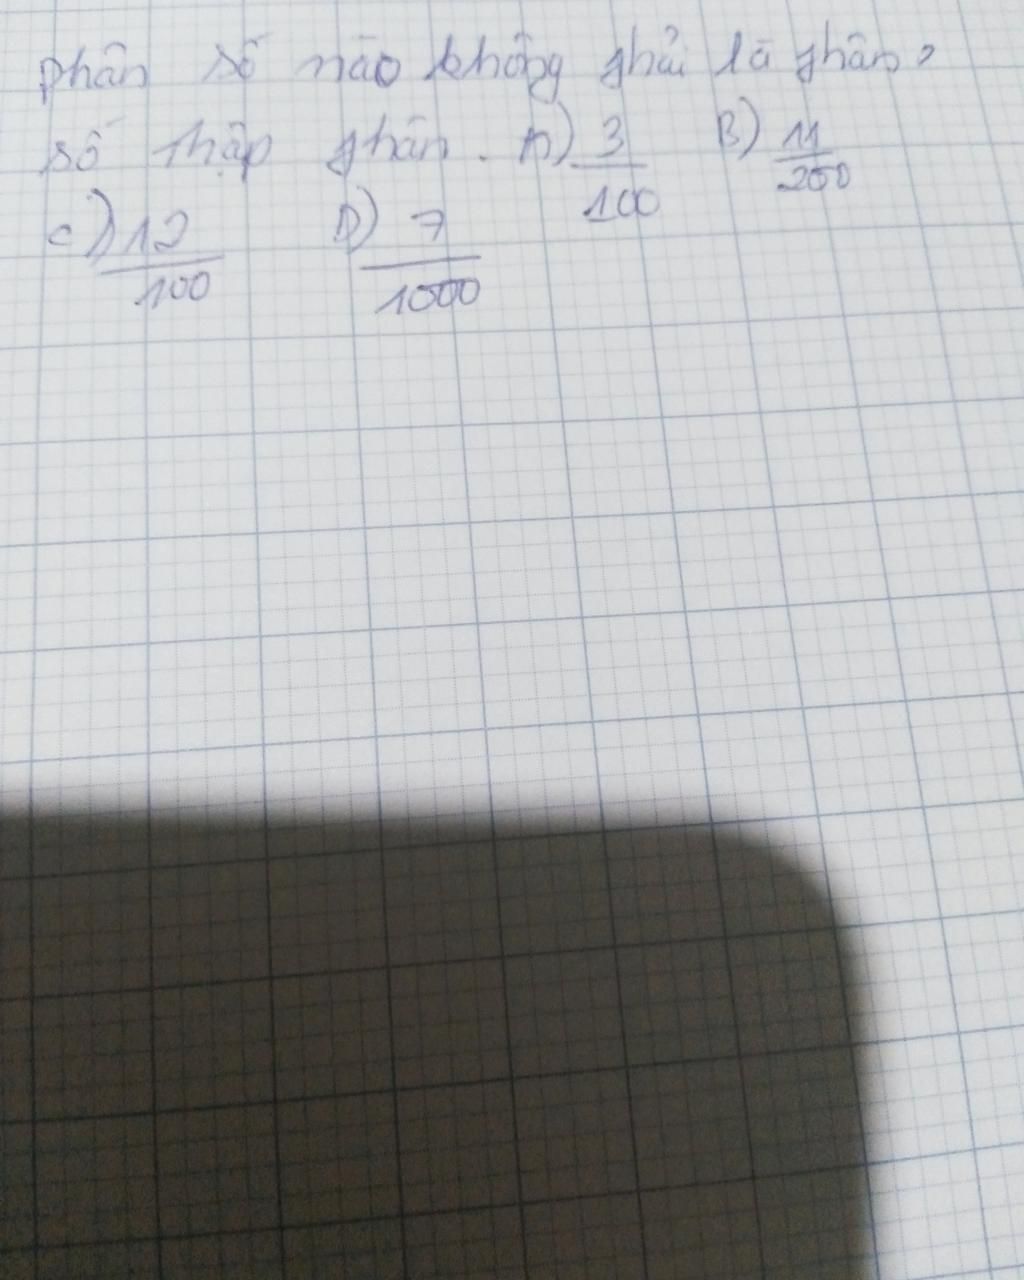 phân số nào không phải là phân
số thập phân. A) 3/100 B) 11/200
C) 12/100 D) 7/1000